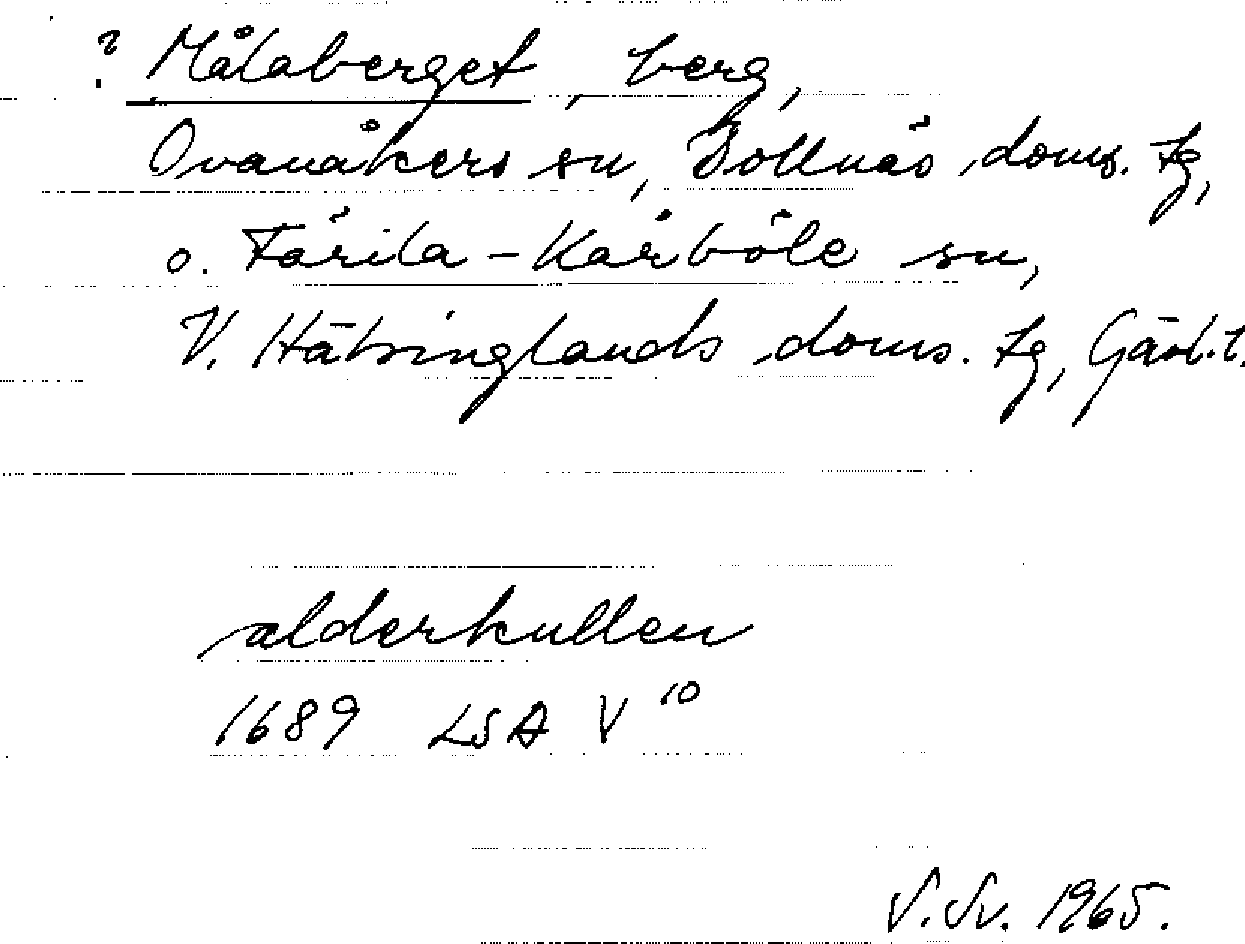 ? Målaberget, berg,
Ovanåkers sn, Bollnäs doms. tg,
o. Färila-Kårböle sn,
V. Hälsinglands doms. tg, Gävl.l.
alderkullen
1689 LSA V 10
S.Sv. 1965.